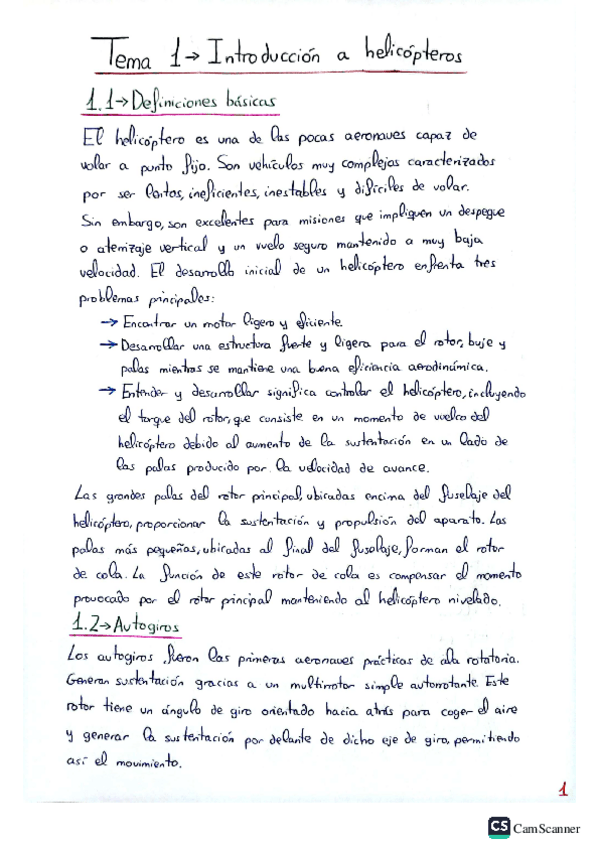 Tema 1→ Introducción a helicópteros
1.1→Definiciones básicas
El helicóptero es una de las pocas aeronaves capaz de
volar a punto fijo. Son vehículos muy complejos caracterizados
por ser lentos, ineficientes, inestables y difíciles de volar.
Sin embargo, son excelentes para misiones que impliquen un despegue
o aterrizaje vertical y un vuelo seguro mantenido a muy baja
velocidad. El desarrollo inicial de un helicóptero enfrenta tres
problemas principales:
→ Encontrar un motor ligero y eficiente.
→ Desarrollar una estructura fuerte y ligera para el rotor, buje y
palas mientras se mantiene una buena eficiencia aerodinámica.
→ Entender y desarrollar significa controlar el helicóptero, incluyendo
el torque del rotor, que consiste en un momento de vuelco del
helicóptero debido al aumento de la sustentación en un lado de
las palas producido por la velocidad de avance.
Las grandes palas del rotor principal, ubicadas encima del fuselaje del
helicóptero, proporcionar la sustentación y propulsión del aparato. Las
palas más pequeñas, ubicadas al final del fuselaje, forman el rotor
de cola. La función de este rotor de cola es compensar el momento
provocado por el rotor principal manteniendo al helicóptero nivelado.
1.2→Autogiros
Los autogiros fueron las primeras aeronaves prácticas de ala rotatoria.
Generan sustentación gracias a un multirrotor simple autorrotante. Este
rotor tiene un ángulo de giro orientado hacia atrás para coger el aire
y generar la sustentación por delante de dicho eje de giro, permitiendo
así el movimiento.
1
CS CamScanner